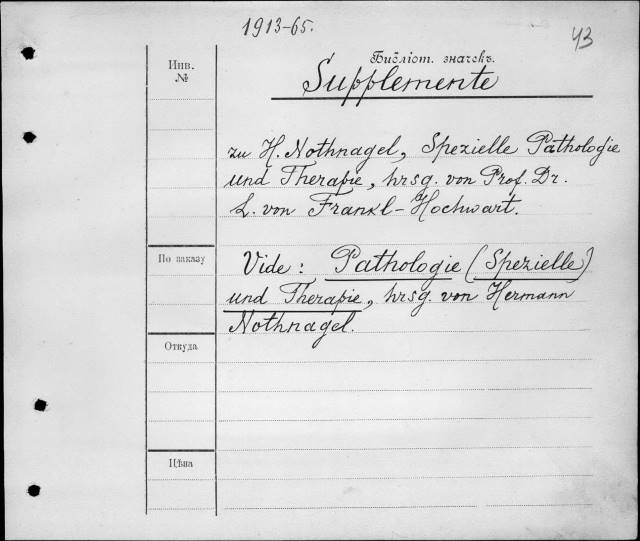 1913-65.
43
Инв.
№
Библіот. значекъ.
Supplemente
zu H. Nothnagel, Spezielle Pathologie
und Therapie, hrsg. von Prof. Dr.
L. von Frankl-Hochwart.
По заказу
Vide: Pathologie (Spezielle)
und Therapie, hrsg. von Hermann
Nothnagel.
Откуда
Цѣна